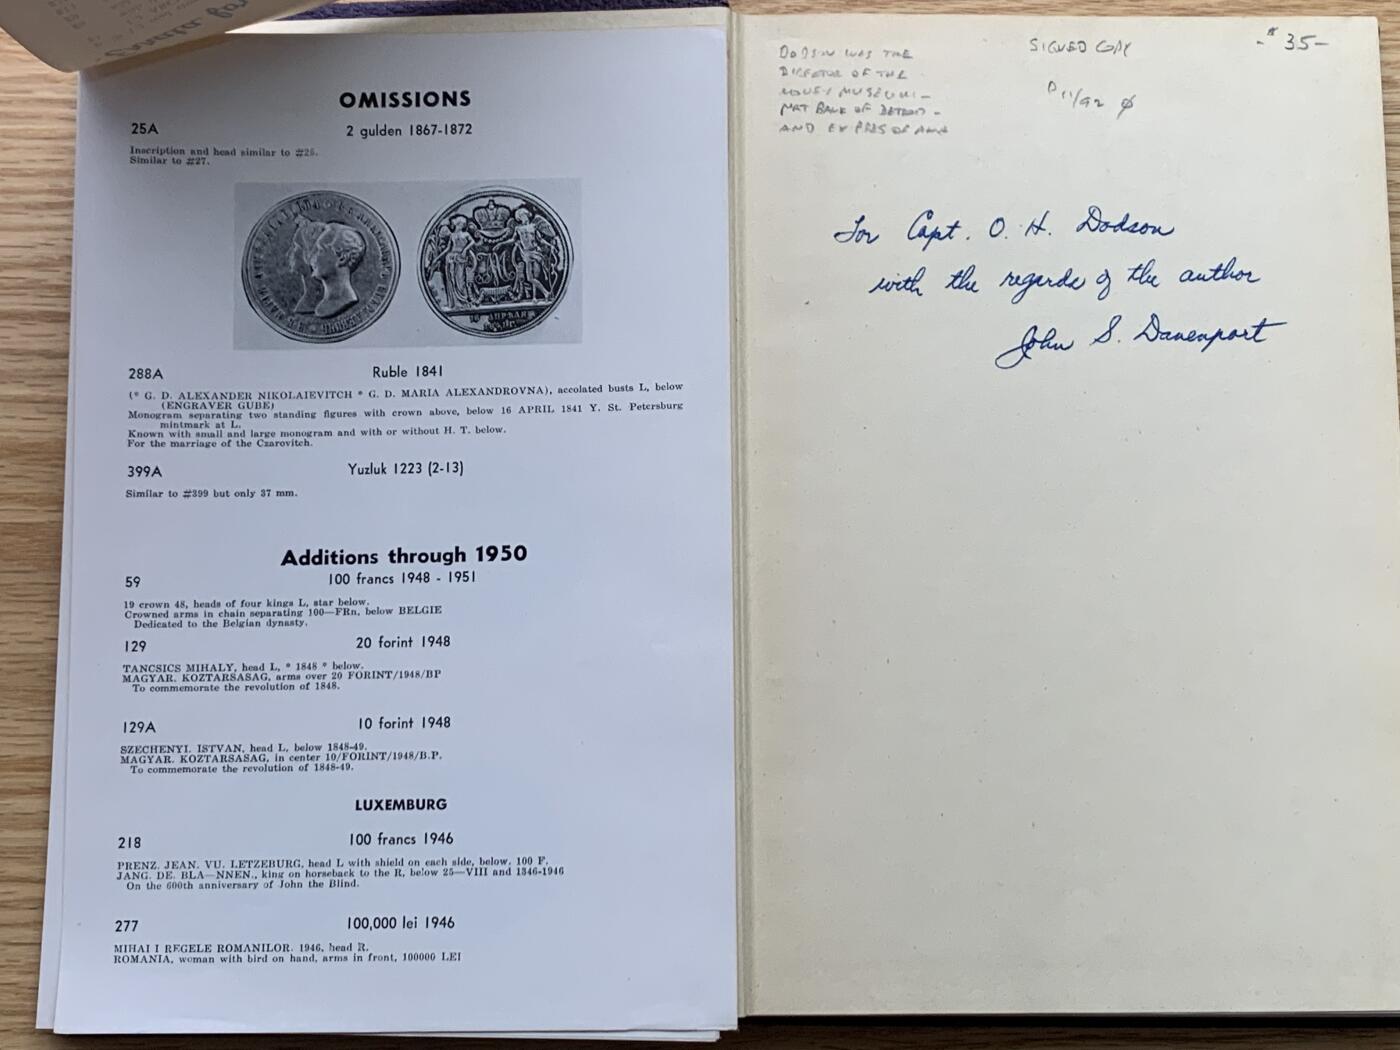 OMISSIONS
25A 2 gulden 1867-1872
Inscription and head similar to #26.
Similar to #27.
288A Ruble 1841
(* G. D. ALEXANDER NIKOLAIEVITCH * G. D. MARIA ALEXANDROVNA), accolated busts L, below
(ENGRAVER GUBE)
Monogram separating two standing figures with crown above, below 16 APRIL 1841 Y. St. Petersburg
mintmark at L.
Known with small and large monogram and with or without H. T. below.
For the marriage of the Czarovitch.
399A Yuzluk 1223 (2-13)
Similar to #399 but only 37 mm.
Additions through 1950
59 100 francs 1948 - 1951
19 crown 48, heads of four kings L, star below.
Crowned arms in chain separating 100—FRn, below BELGIE
Dedicated to the Belgian dynasty.
129 20 forint 1948
TANCSICS MIHALY, head L, * 1848 * below.
MAGYAR. KOZTARSASAG, arms over 20 FORINT/1948/BP
To commemorate the revolution of 1848.
129A 10 forint 1948
SZECHENYI. ISTVAN, head L, below 1848-49.
MAGYAR. KOZTARSASAG, in center 10/FORINT/1948/B.P.
To commemorate the revolution of 1848-49.
LUXEMBURG
218 100 francs 1946
PRENZ. JEAN. VU. LETZEBURG, head L with shield on each side, below, 100 F.
JANG. DE. BLA—NNEN., king on horseback to the R, below 25—VIII and 1346-1946
On the 600th anniversary of John the Blind.
277 100,000 lei 1946
MIHAI I REGELE ROMANILOR. 1946, head R.
ROMANIA, woman with bird on hand, arms in front, 100000 LEI
DODSON WAS THE
DIRECTOR OF THE
MONEY MUSEUM -
NAT BANK OF DETROIT -
AND EX PRES OF ANA
SIGNED COPY
-$35-
P11/92
For Capt. O. H. Dodson
with the regards of the author
John S. Davenport